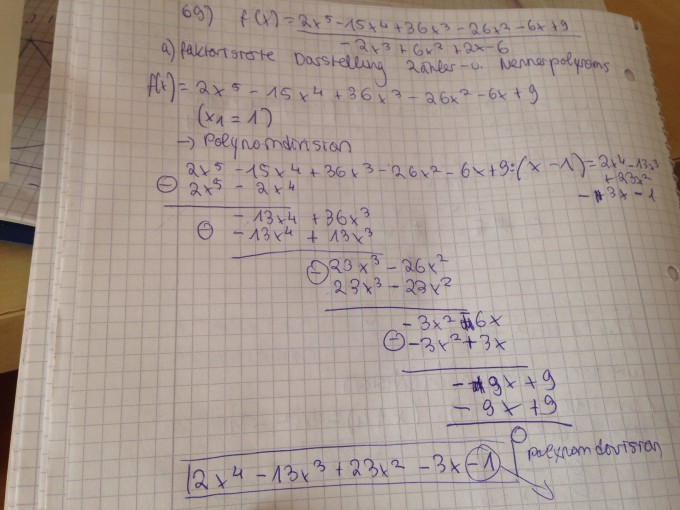 69) f(x) = 2x⁵ - 15x⁴ + 36x³ - 26x² - 6x + 9
- 2x³ + 6x² + 2x - 6
a) faktorisierte Darstellung Zähler- u. Nennerpolynoms
f(x) = 2x⁵ - 15x⁴ + 36x³ - 26x² - 6x + 9
(x1 = 1)
→ Polynomdivision
2x⁵ - 15x⁴ + 36x³ - 26x² - 6x + 9 : (x - 1) = 2x⁴ - 13x³
+ 23x²
- 3x - 1
⊖ 2x⁵ - 2x⁴
- 13x⁴ + 36x³
⊖ - 13x⁴ + 13x³
23x³ - 26x²
⊖ 23x³ - 23x²
- 3x² - 6x
⊖ - 3x² + 3x
- 9x + 9
- 9x + 9
0
2x⁴ - 13x³ + 23x² - 3x - 1
Polynomdivision